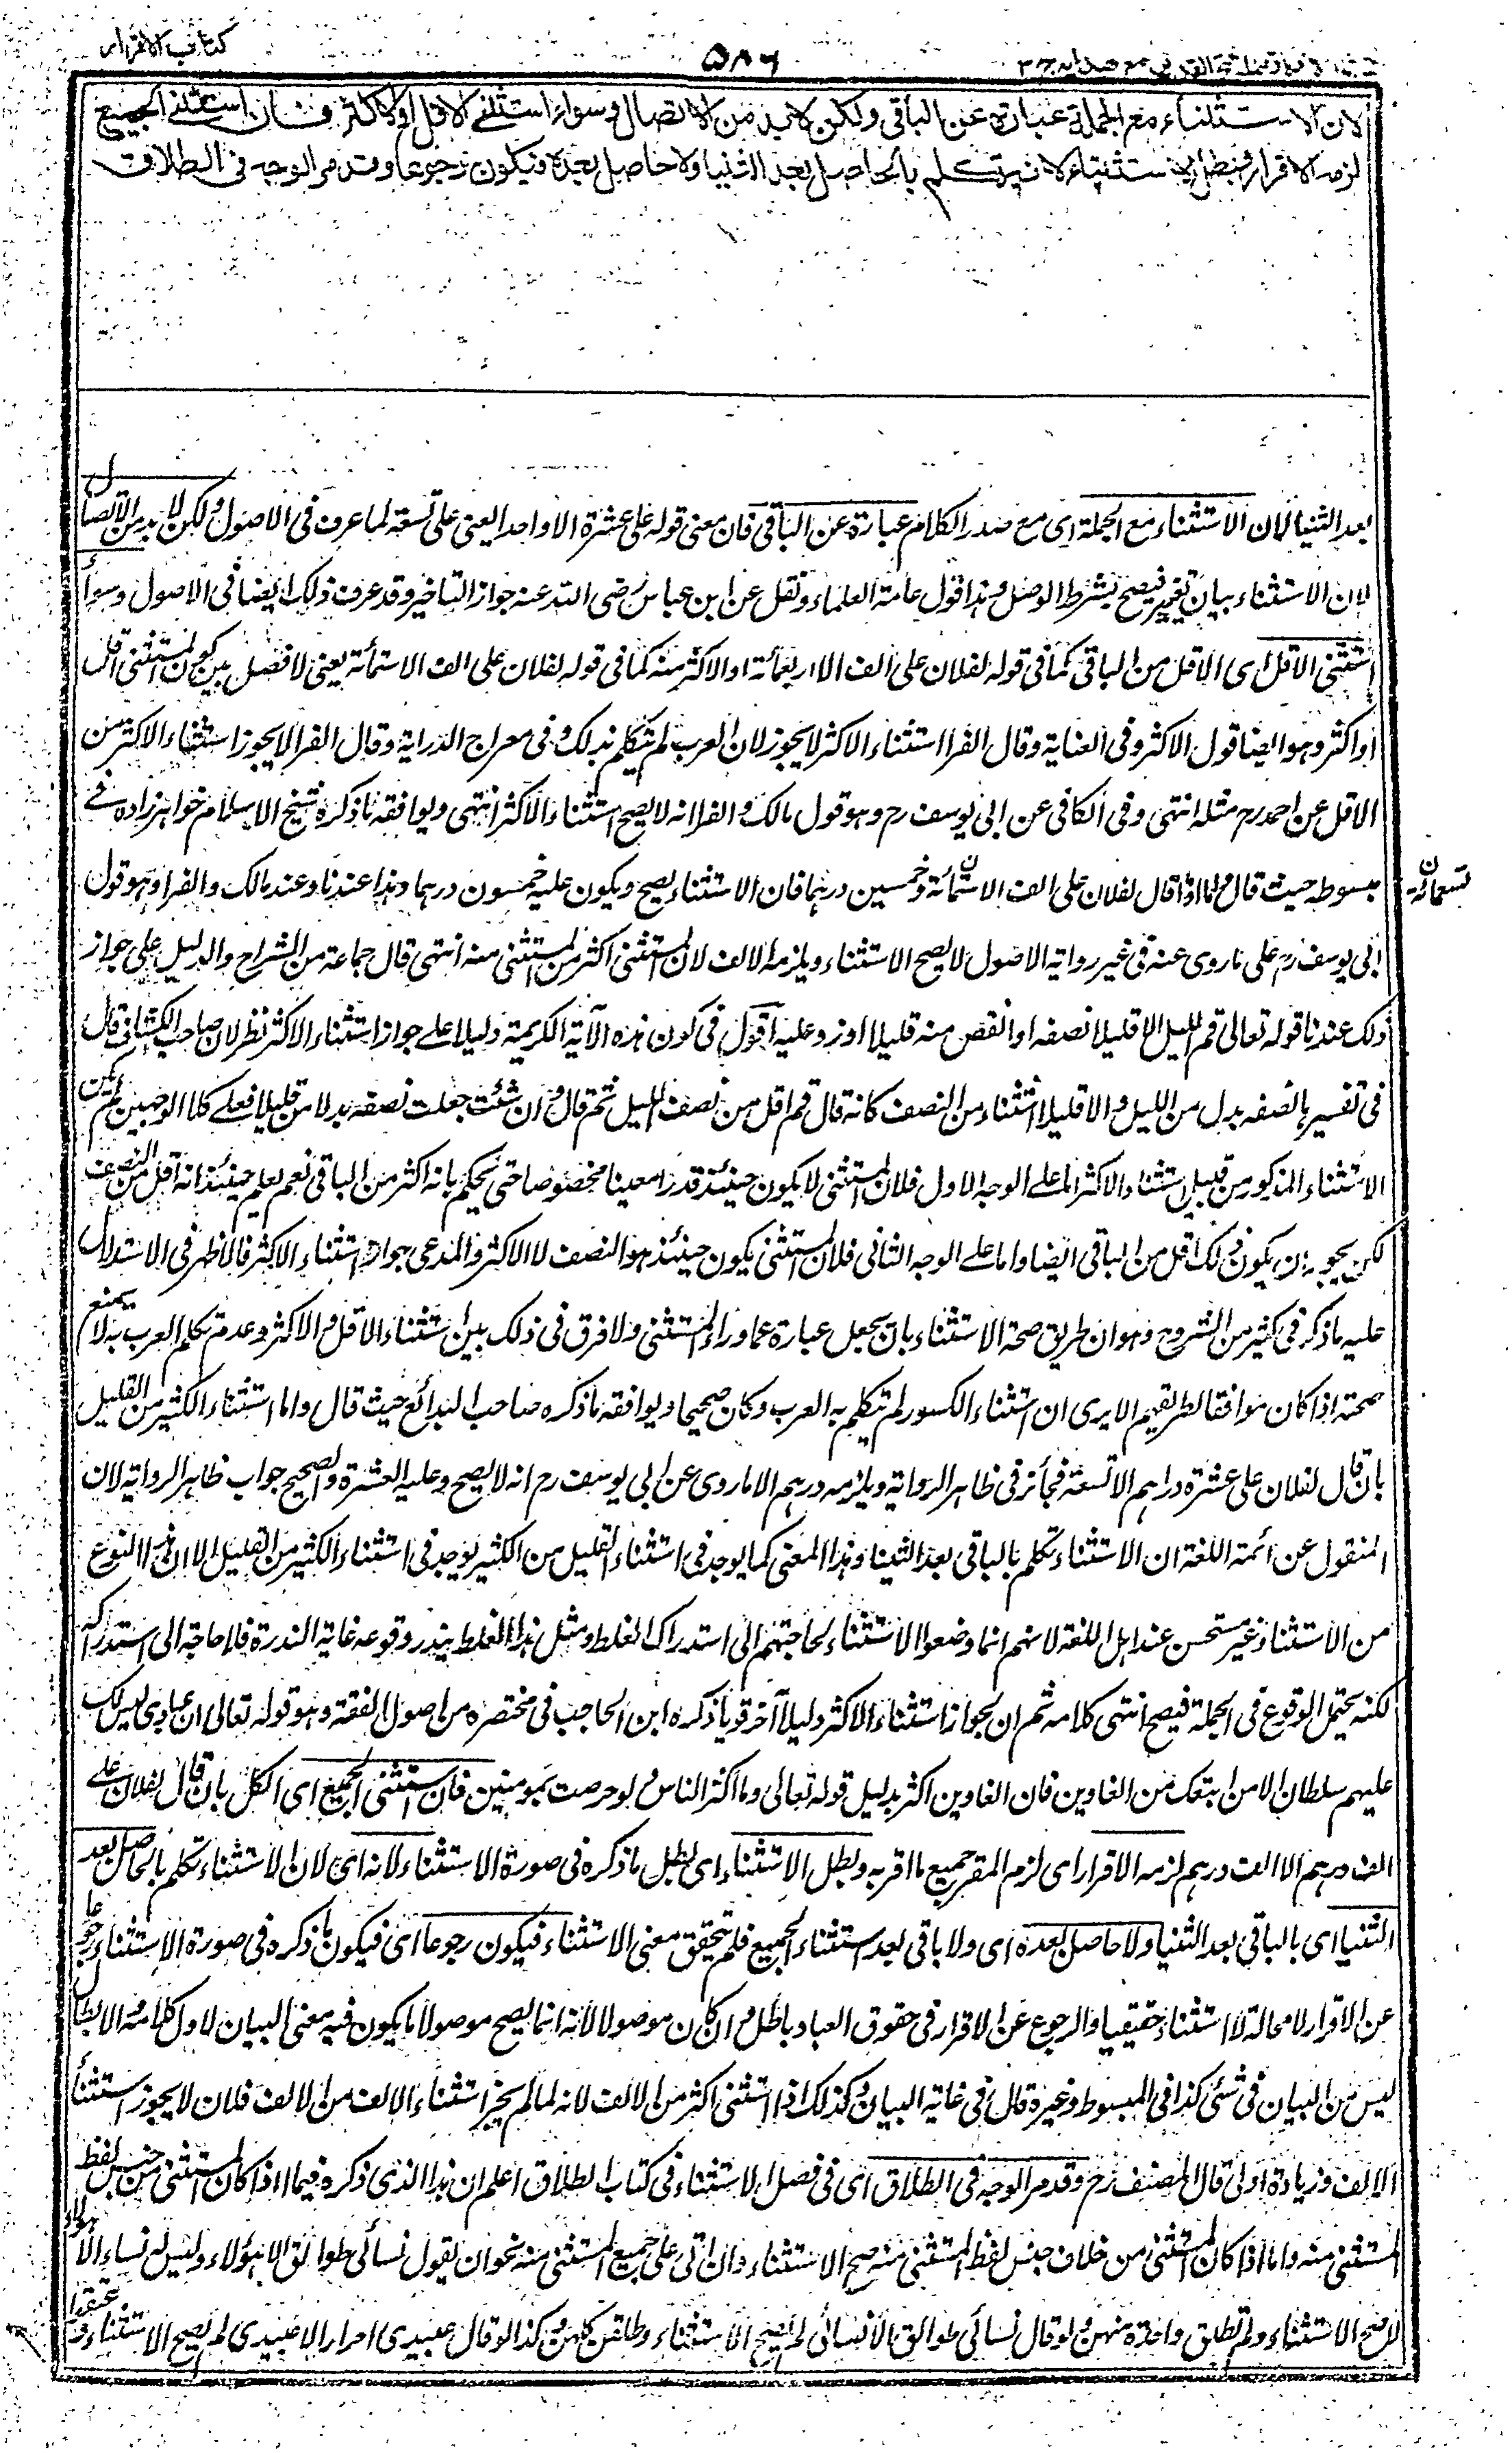 كتاب الاقرار
۵۸۶
لان الاستثناء مع الجملة عبارة عن الباقي ولكن لابد من الاتصال وسواء استثنى الاقل او الاكثر فان استثنى الجميع
لزمه الاقرار وبطل الاستثناء لانه تكلم بالحاصل بعد الثنيا ولا حاصل بعده فيكون رجوعا وقد مر الوجه في الطلاق
بعد الثنيا لان الاستثناء مع الجملة اى مع صدر الكلام عبارة عن الباقي فان معنى قوله علي عشرة الا واحدا يعنى علي تسعة لما عرف في الاصول ولكن لابد من الاتصال
لان الاستثناء بيان تغيير فيصح بشرط الوصل وهذا قول عامة العلماء ونقل عن ابن عباس رضى الله عنه جواز التاخير وقد عرف ذلك ايضا في الاصول وسواء
استثنى الاقل اى الاقل من الباقي كما في قوله لفلان علي الف الا اربعمائة او الاكثر منه كما في قوله لفلان علي الف الا ستمائة يعنى لا فصل بين كون المستثنى اقل
او اكثر وهو ايضا قول الاكثر وفى العناية وقال الفرا استثناء الاكثر لا يجوز لان العرب لم تتكلم بذلك وفى معراج الدراية وقال الفرا لا يجوز استثناء الاكثر من
الاقل عن احمد رح مثله انتهى وفى الكافى عن ابى يوسف رح وهو قول مالك والفرا انه لا يصح استثناء الاكثر انتهى ويوافقه ما ذكره شيخ الاسلام خواهرزاده في
مبسوطه حيث قال واما اذا قال لفلان علي الف الا ستمائة وخمسين درهما فان الاستثناء يصح ويكون عليه خمسون درهما وهذا عندنا وعند مالك والفرا وهو قول
تسعمائة ن
ابى يوسف رح على ما روى عنه في غير رواية الاصول لا يصح الاستثناء ويلزمه الالف لان المستثنى اكثر من المستثنى منه انتهى قال جماعة من الشراح والدليل على جواز
ذلك عندنا قوله تعالى قم الليل الا قليلا نصفه او انقص منه قليلا او زد عليه اقول في كون هذه الآية الكريمة دليلا على جواز استثناء الاكثر نظر لان صاحب الكشاف قال
في تفسيرها نصفه بدل من الليل والا قليلا استثناء من النصف كانه قال قم اقل من نصف الليل ثم قال وان شئت جعلت نصفه بدلا من قليلا فعلى كلا الوجهين لم يكن
الاستثناء المذكور من قبيل استثناء الاكثر اما على الوجه الاول فلان المستثنى لا يكون حينئذ قدرا معينا مخصوصا حتى يحكم بانه اكثر من الباقي نعم يعلم حينئذ انه اقل من النصف
لكن يجوز ان يكون ذلك اقل من الباقي ايضا واما على الوجه الثانى فلان المستثنى يكون حينئذ هو النصف لا الاكثر والمدعى جواز استثناء الاكثر فالاظهر في الاستدلال
عليه ما ذكر في كثير من الشروح وهو ان طريق صحة الاستثناء بان يجعل عبارة عما وراء المستثنى ولا فرق في ذلك بين استثناء الاقل والاكثر وعدم تكلم العرب به لا يمنع
صحته اذا كان موافقا لطريقهم الا يرى ان استثناء الكسور لم تتكلم به العرب وكان صحيحا ويوافقه ما ذكره صاحب البدائع حيث قال واما استثناء الكثير من القليل
بان قال لفلان علي عشرة دراهم الا تسعة فجائز في ظاهر الرواية ويلزمه درهم الا ما روى عن ابى يوسف رح انه لا يصح وعليه العشرة والصحيح جواب ظاهر الرواية لان
المنقول عن ائمة اللغة ان الاستثناء تكلم بالباقي بعد الثنيا وهذا المعنى كما يوجد في استثناء القليل من الكثير يوجد في استثناء الكثير من القليل الا ان هذا النوع
من الاستثناء غير مستحسن عند اهل اللغة لانهم انما وضعوا الاستثناء لحاجتهم الى استدراك الغلط ومثل هذا الغلط يندر وقوعه غاية الندرة فلا حاجة الى استدراكه
لكنه يحتمل الوقوع في الجملة فيصح انتهى كلامه ثم ان لجواز استثناء الاكثر دليلا آخر قويا ذكره ابن الحاجب في مختصره من اصول الفقة وهو قوله تعالى ان عبادى ليس لك
عليهم سلطان الا من اتبعك من الغاوين فان الغاوين اكثر بدليل قوله تعالى وما اكثر الناس ولو حرصت بمومنين فان استثنى الجميع اى الكل بان قال لفلان على
الف درهم الا الف درهم لزمه الاقرار اى لزم المقر جميع ما اقر به وبطل الاستثناء اى بطل ما ذكره في صورة الاستثناء لانه اى لان الاستثناء تكلم بالحاصل بعد
الثنيا اى بالباقي بعد الثنيا ولا حاصل بعده اى ولا باقي بعد استثناء الجميع فلم يتحقق معنى الاستثناء فيكون رجوعا اى فيكون ما ذكره في صورة الاستثناء رجوعا
عن الاقرار لا محالة لا استثناء حقيقيا والرجوع عن الاقرار في حقوق العباد باطل وان كان موصولا لانه انما يصح موصولا ما يكون فيه معنى البيان لاول كلامه والابطال
ليس من البيان في شئى كذا في المبسوط وغيره قال في غاية البيان وكذلك اذا استثنى اكثر من الالف لانه لما لم يجز استثناء الالف من الالف فلان لا يجوز استثناء
الالف وزيادة اولى قال المصنف رح وقد مر الوجه في الطلاق اى في فصل الاستثناء في كتاب الطلاق اعلم ان هذا الذى ذكره فيما اذا كان المستثنى من جنس لفظ
المستثنى منه واما اذا كان المستثنى من خلاف جنس لفظ المستثنى منه صح الاستثناء وان اتى على جميع المستثنى منه نحو ان يقول نسائى طوالق الا هؤلاء وليس له نساء الا هؤلاء
صح الاستثناء ولم تطلق واحدة منهن ولو قال نسائى طوالق الا نسائى لم يصح الاستثناء وطلقن كلهن وكذا لو قال عبيدى احرار الا عبيدى لم يصح الاستثناء